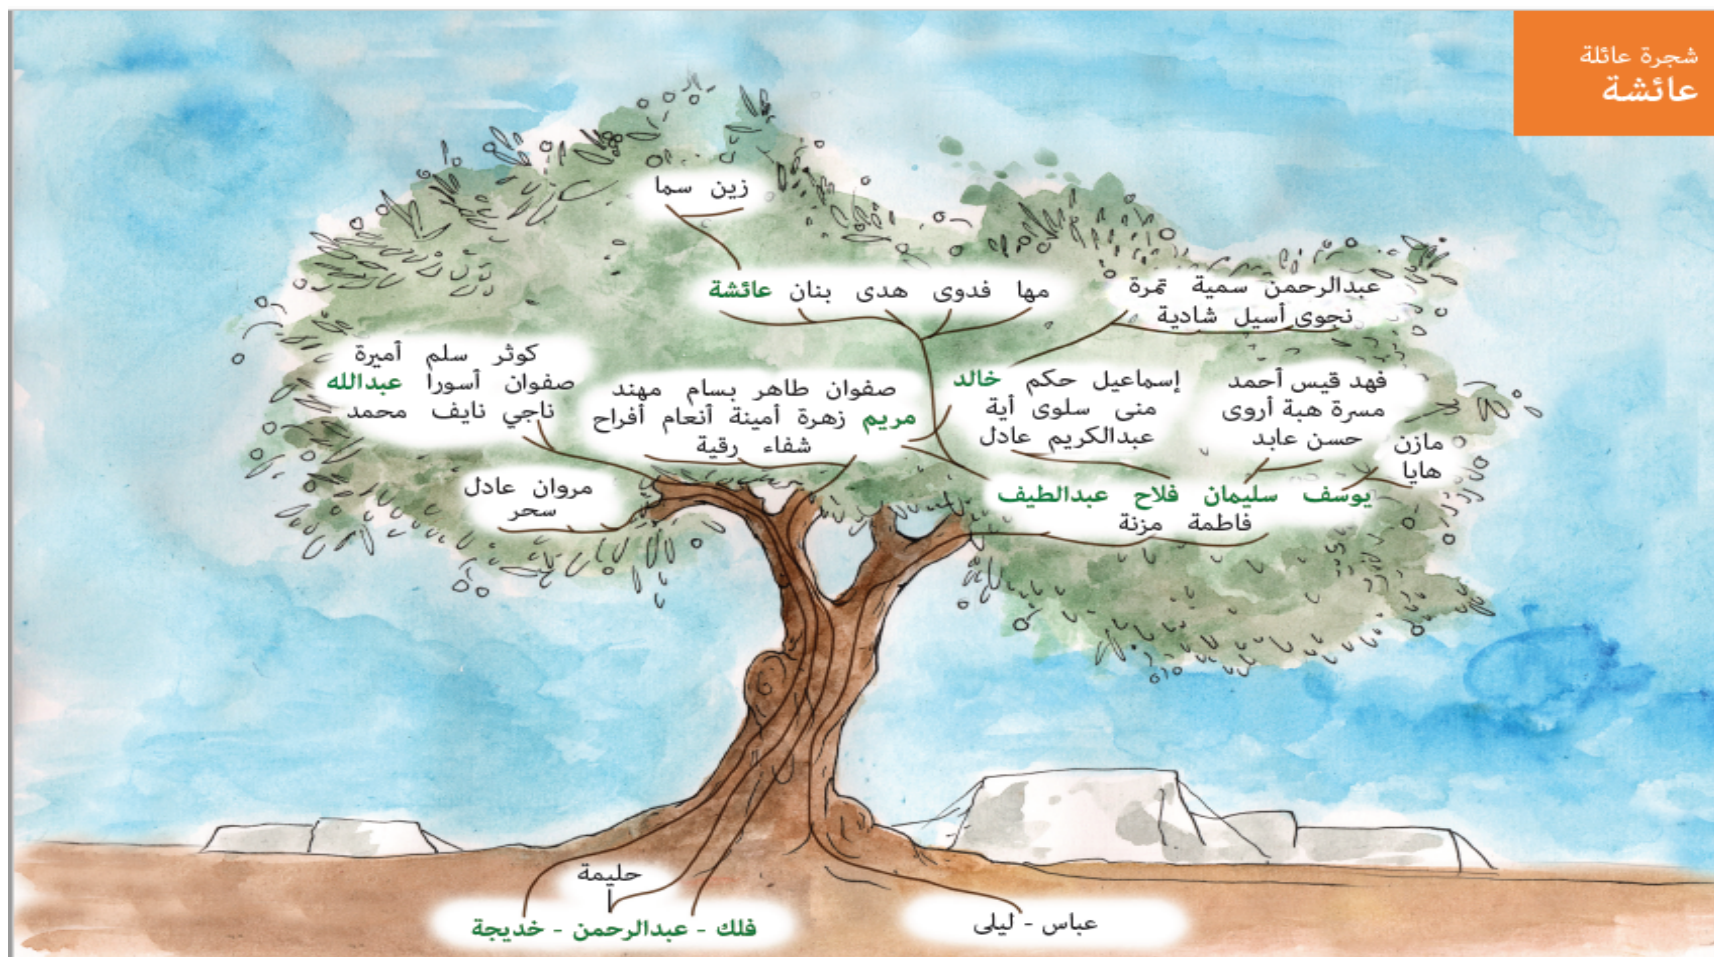 شجرة عائلة
عائشة
زين سما
مها فدوى هدى بنان عائشة
عبدالرحمن سمية تمرة
نجوى أسيل شادية
كوثر سلم أميرة
صفوان أسورا عبدالله
ناجي نايف محمد
صفوان طاهر بسام مهند
مريم زهرة أمينة أنعام أفراح
شفاء رقية
إسماعيل حكم خالد
منى سلوى أية
عبدالكريم عادل
فهد قيس أحمد
مسرة هبة أروى
حسن عابد
مازن
هايا
مروان عادل
سحر
يوسف سليمان فلاح عبدالطيف
فاطمة مزنة
حليمة
أ
فلك - عبدالرحمن - خديجة
عباس - ليلى